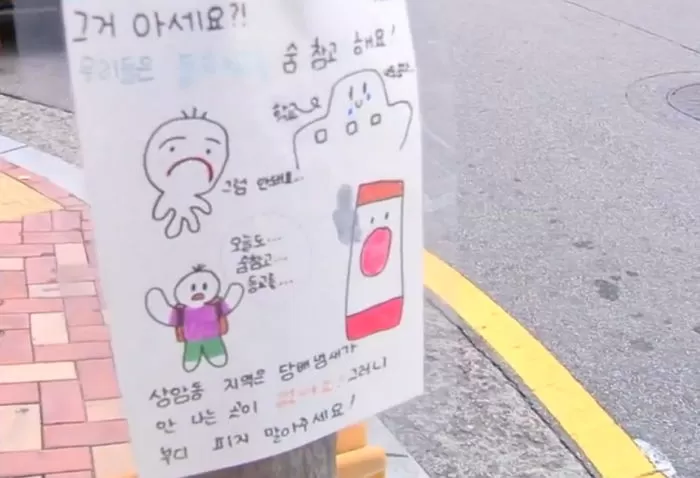 그거 아세요?!
우리들은 숨 참고 해요!
학교
그럼 안돼요...
오늘도...
숨참고...
등교를...
상암동 지역은 담배냄새가
안 나는 곳이 없어요! 그러니
부디 피지 말아주세요!